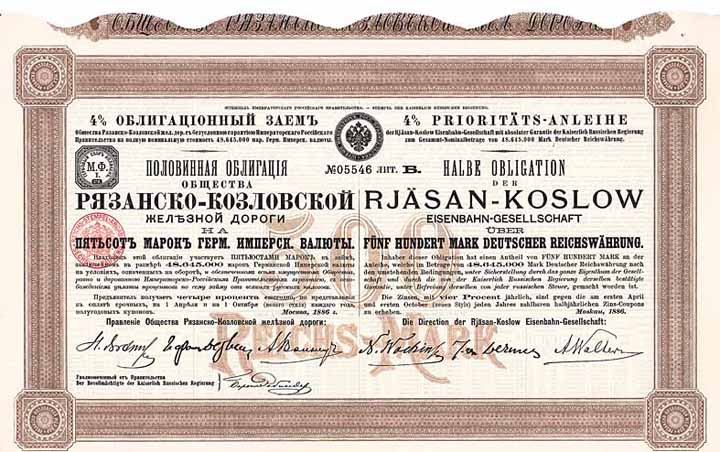 ОБЩЕСТВО РЯЗАНСКО-КОЗЛОВСКОЙ ЖЕЛ. ДОРОГИ
ШТЕМПЕЛЬ ИМПЕРАТОРСКАГО РОССІЙСКАГО ПРАВИТЕЛЬСТВА. — STEMPEL DER KAISERLICH RUSSISCHEN REGIERUNG.
4% ОБЛИГАЦІОННЫЙ ЗАЕМЪ
Общества Рязанско-Козловской жел. дор. съ безусловною гарантіею Императорскаго Россійскаго
Правительства на полную нominальную стоимость 48,645,000 мар. Герм. Имперск. валюты.
4% PRIORITÄTS-ANLEIHE
der Rjäsan-Koslow Eisenbahn-Gesellschaft mit absoluter Garantie der Kaiserlich Russischen Regierung
zum Gesammt-Nominalbetrage von 48,645,000 Mark Deutscher Reichswährung.
№05546 ЛИТ. B.
М.Ф.
I.
ПОЛОВИННАЯ ОБЛИГАЦІЯ
ОБЩЕСТВА
РЯЗАНСКО-КОЗЛОВСКОЙ
ЖЕЛѢЗНОЙ ДОРОГИ
НА
ПЯТЬСОТЪ МАРОКЪ ГЕРМ. ИМПЕРСК. ВАЛЮТЫ.
Владѣлецъ этой облигаціи участвуетъ ПЯТЬЮСТАМИ МАРОКЪ въ займѣ,
заключенномъ въ размѣрѣ 48,645,000 марокъ Германской Имперской валюты
на условіяхъ, означенныхъ на оборотѣ, и обезпеченномъ всѣмъ имуществомъ Общества,
Предъявитель получаетъ четыре процента ежегодно, по представленіи
въ сплатѣ срочныхъ, на 1 Апрѣля и на 1 Октября (новаго стиля) каждаго года,
полугодовыхъ купоновъ.
Москва, 1886 г.
Правленіе Общества Рязанско-Козловской желѣзной дороги:
HALBE OBLIGATION
DER
RJÄSAN-KOSLOW
EISENBAHN-GESELLSCHAFT
ÜBER
FÜNF HUNDERT MARK DEUTSCHER REICHSWÄHRUNG.
Inhaber dieser Obligation hat einen Antheil von FÜNF HUNDERT MARK an der
Anleihe, welche im Betrage von 48,645,000 Mark Deutscher Reichswährung nach
den umstehenden Bedingungen, unter Sicherstellung durch das ganze Eigenthum der Gesell-
schaft und durch die absolute, von der Kaiserlich Russischen Regierung derselben bestätigte
Garantie, unter Befreiung derselben von jeder russischen Steuer, gemacht worden ist.
Die Zinsen, mit vier Procent jährlich, sind gegen die am ersten April
und ersten October (neuen Styls) jeden Jahres zahlbaren halbjährlichen Zins-Coupons
zu erheben.
Moskau, 1886.
Die Direction der Rjäsan-Koslow Eisenbahn-Gesellschaft:
A Walter
Уполномоченный отъ Правительства
Der Bevollmächtigte der Kaiserlich Russischen Regierung
500
REICHS MARK